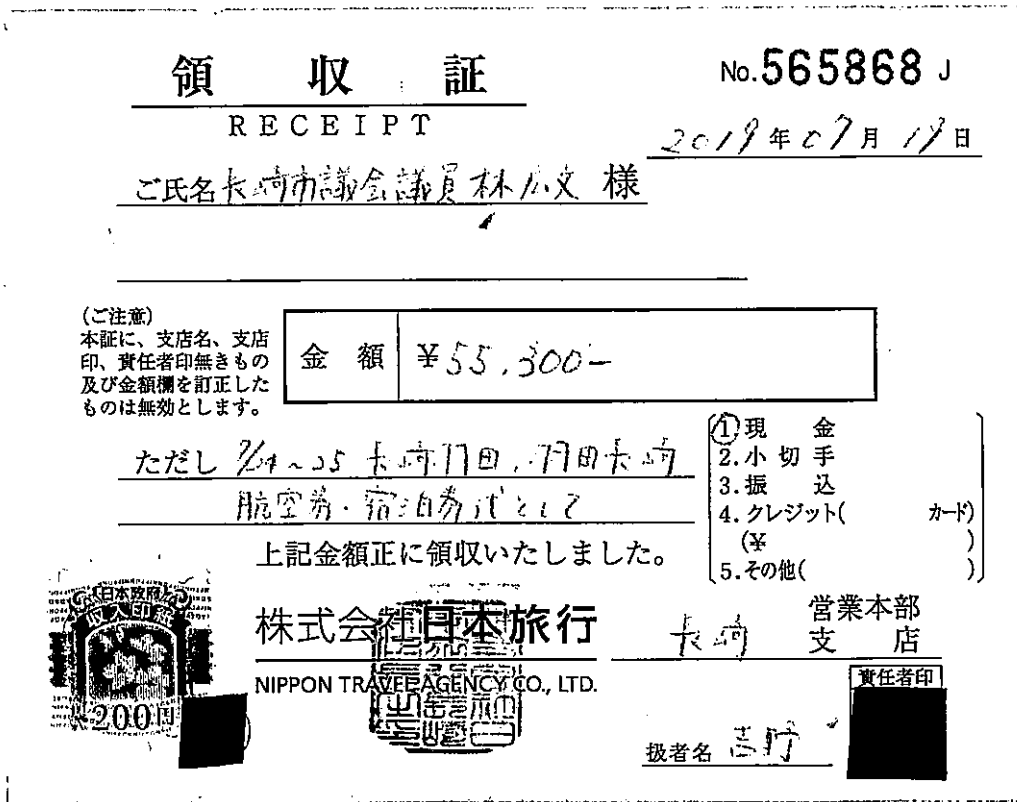 領 収 証
RECEIPT
No.565868 J
2019年07月19日
ご氏名 長崎市議会議員 林広文 様
(ご注意)
本証に、支店名、支店
印、責任者印無きもの
及び金額欄を訂正した
ものは無効とします。
金 額 ¥55,300-
ただし 7/24~25 長崎羽田、羽田長崎
航空券・宿泊券代として
1.現 金
2.小切手
3.振 込
4.クレジット( カード)
(¥ )
5.その他( )
上記金額正に領収いたしました。
日本政府
収入印紙
200円
株式会社日本旅行
NIPPON TRAVEL AGENCY CO., LTD.
営業本部
長崎 支 店
責任者印
扱者名